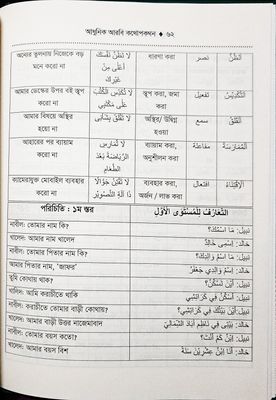 আধুনিক আরবি কথোপকথন ♦ ৬২
অন্যের তুলনায় নিজেকে বড় মনে করো না | لَا تَظُنَّ نَفْسَكَ أَعْلَى مِنْ غَيْرِكَ | ধারণা করা | نصر | الظَّنُّ
আমার ডেস্কের উপর বই স্তূপ করো না | لَا تُكَدِّسِ الْكُتُبَ عَلَى مَكْتَبِي | স্তূপ করা, জমা করা | تفعيل | التَّكْدِيْسُ
আমার বিষয়ে অস্থির হয়ো না | لَا تَقْلَقْ بِشَأْنِي | অস্থির/উদ্বিগ্ন হওয়া | سمع | الْقَلَقُ
আহারের পর ব্যায়াম করো না | لَا تُمَارِسِ الرِّيَاضَةَ بَعْدَ الطَّعَامِ | ব্যায়াম করা, অনুশীলন করা | مفاعلة | الْمُمَارَسَةُ
ক্যামেরাযুক্ত মোবাইল ব্যবহার করো না | لَا تَقْتَنِ جَوَّالًا ذَا آلَةِ التَّصْوِيْرِ | ব্যবহার করা, অর্জন / লাভ করা | افتعال | الْاِقْتِنَاءُ
পরিচিতি : ১ম স্তর | التَّعَارُفُ لِلْمُسْتَوَى الْأَوَّلِ
নাবীল: তোমার নাম কি? | نبيل: مَا اسْمُكَ؟
খালেদ: আমার নাম খালেদ | خالد: اِسْمِيْ خَالِدٌ
নাবীল: তোমার পিতার নাম কি? | نبيل: مَا اسْمُ وَالِدِكَ؟
আমার পিতার নাম, 'জাফর' | خالد: اِسْمُ وَالِدِيْ جَعْفَرُ
তুমি কোথায় থাক? | نبيل: أَيْنَ تَسْكُنُ؟
খালেদ: আমি করাচীতে থাকি | خالد: أَسْكُنُ فِيْ كَرَاتْشِيْ
নাবীল: করাচীতে তোমার বাড়ী কোথায়? | نبيل: أَيْنَ بَيْتُكَ فِيْ كَرَاتْشِيْ؟
খালেদ: আমার বাড়ী উত্তর নাজেমাবাদ | خالد: بَيْتِيْ فِيْ نَاظِمْ آبَادْ الشَّمَالِيْ
নাবীল: তোমার বয়স কতো? | نبيل: اِبْنُ كَمْ أَنْتَ؟
খালেদ: আমার বয়স বিশ | خالد: أَنَا ابْنُ عِشْرِيْنَ سَنَةً